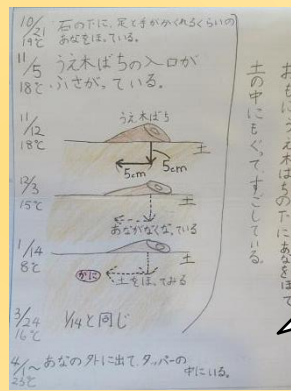 10/21 19℃ 石の下に、足と手がかくれるくらいの
あなをほっている。
11/5 18℃ うえ木ばちの入口が
ふさがっている。
11/12 18℃
うえ木ばち
土
5cm
5cm
12/3 15℃
土
あながなくなっている
1/14 8℃
土
かに
土をほってみる
3/24 16℃ 1/14と同じ
4/1〜 23℃ あなの外に出て、タッパーの
中にいる。
おもに、うえ木ばちの下にあなをほって
土の中にもぐってすごしている。